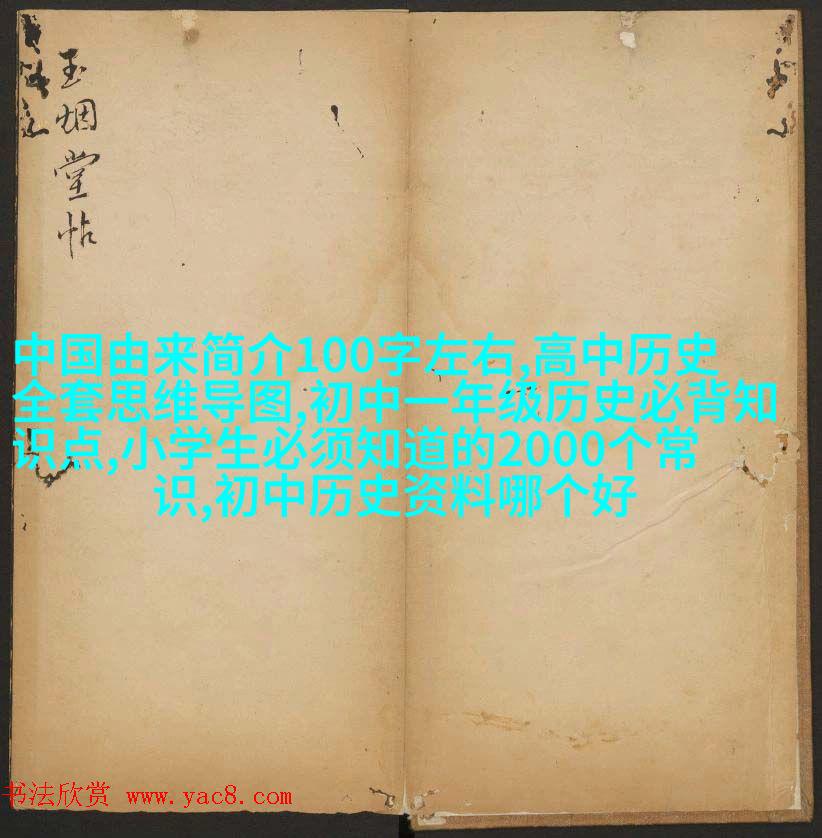 玉烟堂帖
中国由来简介100字左右,高中历史
全套思维导图,初中一年级历史必背知
识点,小学生必须知道的2000个常
识,初中历史资料哪个好
书法欣赏 www.yac8.com